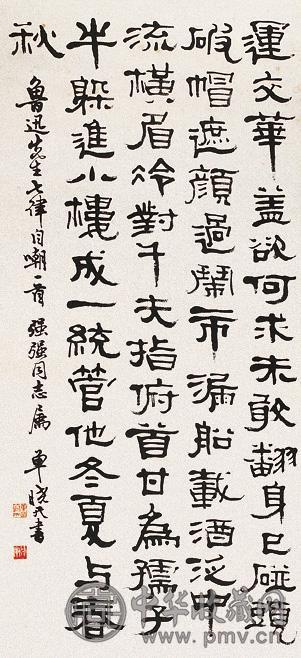 運交華蓋欲何求未敢翻身已碰頭
破帽遮顏過鬧市漏船載酒泛中
流橫眉冷對千夫指俯首甘為孺子
牛躲進小樓成一統管他冬夏与春
秋
魯迅先生七律自嘲一首 强强同志属 單曉天書
中华收藏网
www.pmv.cn